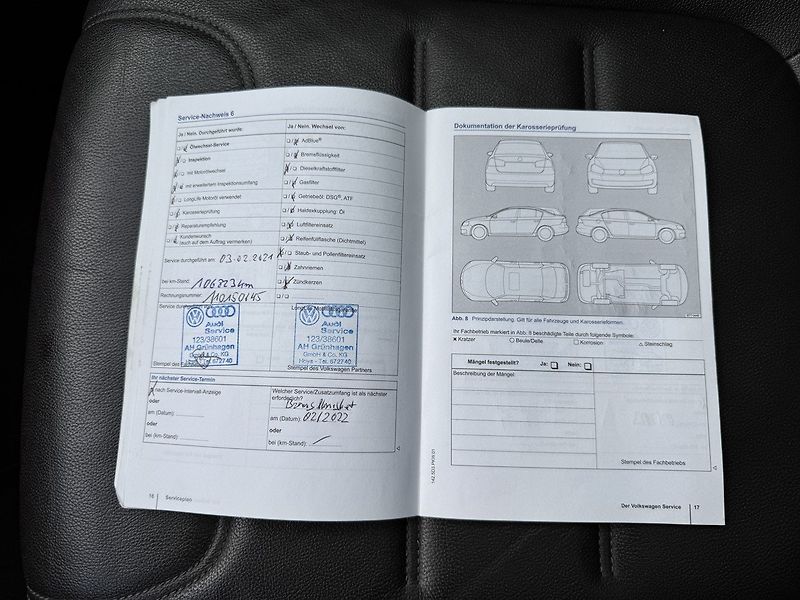 Service-Nachweis 6
Ja / Nein. Durchgeführt wurde:
Ölwechsel-Service
Inspektion
mit Motorölwechsel
mit erweitertem Inspektionsumfang
LongLife Motoröl verwendet
Karosserieprüfung
Reparaturempfehlung
Kundenwunsch
(auch auf dem Auftrag vermerken)
Service durchgeführt am: 03.02.2021
bei km-Stand: 106823 km
Rechnungsnummer: 110150145
Service durchgeführt
Audi
Service
123/38601
AH Grünhagen
GmbH & Co. KG
Hoya - Tel. 672740
Stempel des
Ja / Nein. Wechsel von:
AdBlue®
Bremsflüssigkeit
Dieselkraftstofffilter
Gasfilter
Getriebeöl: DSG®, ATF
Haldexkupplung: Öl
Luftfiltereinsatz
Reifenfüllflasche (Dichtmittel)
Staub- und Pollenfiltereinsatz
Zahnriemen
Zündkerzen
Audi
Service
123/38601
AH Grünhagen
GmbH & Co. KG
Hoya - Tel. 672740
Stempel des Volkswagen Partners
Ihr nächster Service-Termin
nach Service-Intervall-Anzeige
oder
am (Datum):
oder
bei (km-Stand):
Welcher Service/Zusatzumfang ist als nächster
erforderlich?
am (Datum): 02/2022
oder
bei (km-Stand):
16 Serviceplan
Dokumentation der Karosserieprüfung
Abb. 8 Prinzipdarstellung. Gilt für alle Fahrzeuge und Karosserieformen.
Ihr Fachbetrieb markiert in Abb. 8 beschädigte Teile durch folgende Symbole:
x Kratzer ○ Beule/Delle □ Korrosion △ Steinschlag
Mängel festgestellt? Ja: Nein:
Beschreibung der Mängel:
Stempel des Fachbetriebs
Der Volkswagen Service 17